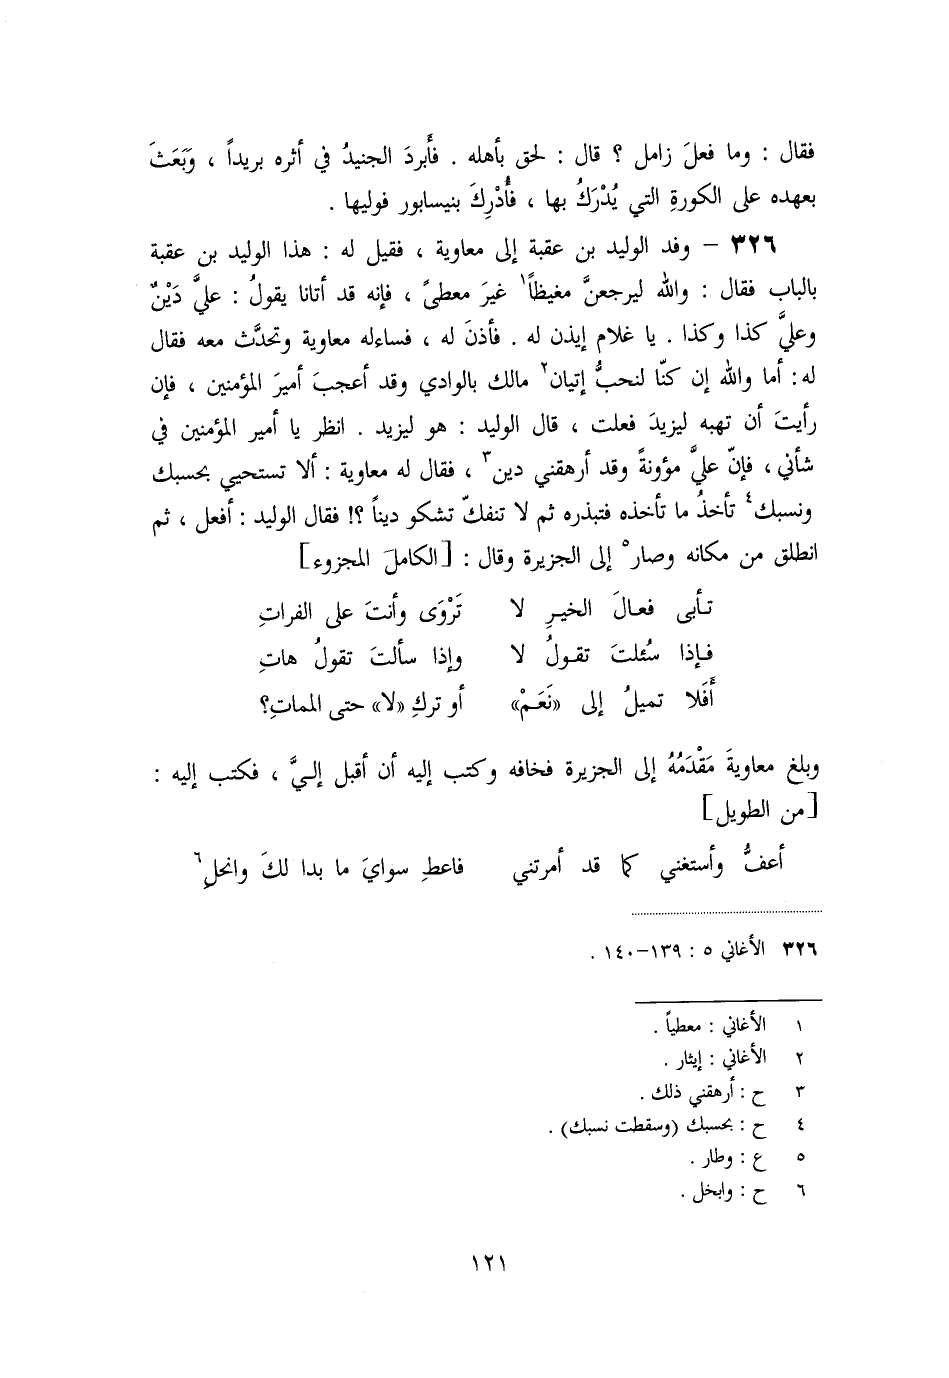 فقال : وما فعلَ زامل ؟ قال : لحق بأهله . فأَبردَ الجنيدُ في أثره بريداً ، وَبَعَثَ
بعهده على الكورةِ التي يُدْرَكُ بها ، فأُدْرِكَ بنيسابور فوليها .
٣٢٦ – وفد الوليد بن عقبة إلى معاوية ، فقيل له : هذا الوليد بن عقبة
بالباب فقال : والله ليرجعنَّ مغيظاً١ غيرَ معطىً ، فإنه قد أتانا يقولُ : عليَّ دَيْنٌ
وعليَّ كذا وكذا . يا غلام إيذن له . فأذنَ له ، فساءله معاوية وتحدَّث معه فقال
له : أما والله إن كنّا لنحبُّ إتيان٢ مالك بالوادي وقد أعجبَ أميرَ المؤمنين ، فإن
رأيتَ أن تهبه ليزيدَ فعلت ، قال الوليد : هو ليزيد . انظر يا أمير المؤمنين في
شأني ، فإنّ عليَّ مؤونةً وقد أرهقني دين٣ ، فقال له معاوية : ألا تستحيي بحسبك
ونسبك٤ تأخذُ ما تأخذه فتبذره ثم لا تنفكّ تشكو ديناً ؟! فقال الوليد : أفعل ، ثم
انطلق من مكانه وصار٥ إلى الجزيرة وقال : [الكاملَ المجزوء]
تأبى فعالَ الخيرِ لا تَرْوَى وأنتَ على الفراتِ
فإذا سُئلتَ تقولُ لا وإذا سألتَ تقولُ هاتِ
أَفَلا تميلُ إلى «نَعَمْ» أو تركِ «لا» حتى المماتِ؟
وبلغ معاويةَ مَقْدَمُهُ إلى الجزيرة فخافه وكتب إليه أن أقبل إليَّ ، فكتب إليه :
[من الطويل]
أعفُّ وأستغني كما قد أمرتني فاعطِ سوايَ ما بدا لكَ وانحلِ٦
٣٢٦ الأغاني ٥ : ١٣٩–١٤٠ .
١ الأغاني : معطياً .
٢ الأغاني : إيثار .
٣ ح : أرهقني ذلك .
٤ ح : بحسبك (وسقطت نسبك) .
٥ ع : وطار .
٦ ح : وابخل .
١٢١